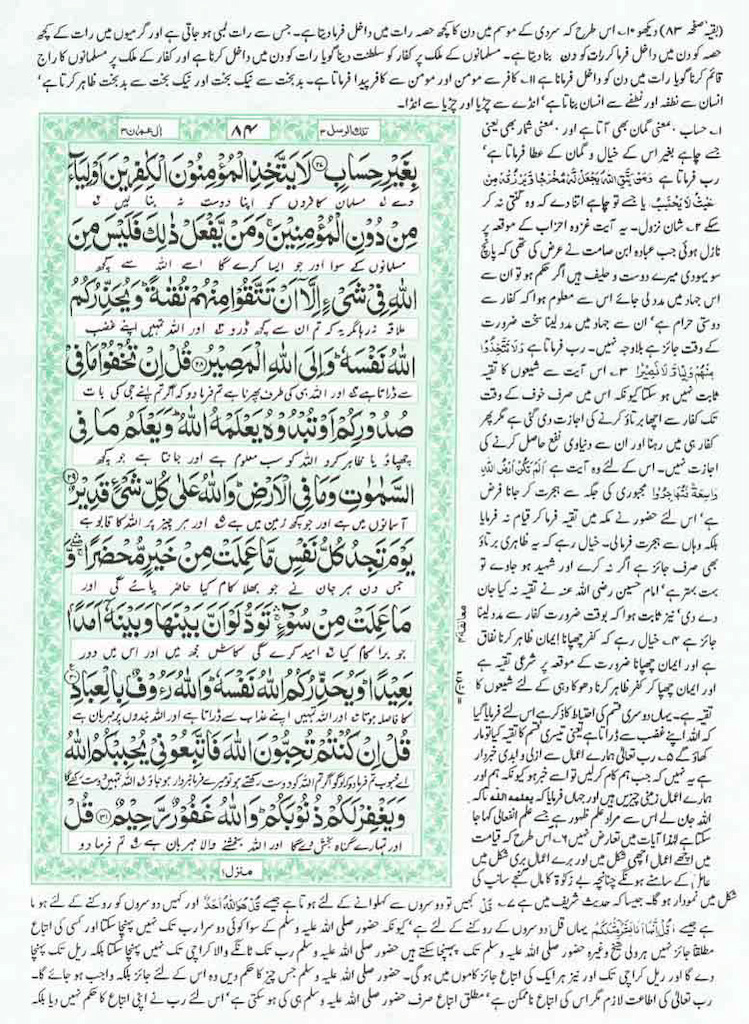 (بقیہ صفحہ ۸۳) دیکھو ۱۰۔ اس طرح کہ سردی کے موسم میں دن کا کچھ حصہ رات میں داخل فرما دیتا ہے۔ جس سے رات لمبی ہو جاتی ہے اور گرمیوں میں رات کے کچھ
حصہ کو دن میں داخل فرما کر رات کو دن بنا دیتا ہے۔ مسلمانوں کے ملک پر کفار کو سلطنت دینا گویا رات کو دن میں داخل کرنا ہے اور کفار کے ملک پر مسلمانوں کا راج
قائم کرنا گویا رات میں دن کو داخل فرمانا ہے ۱۱۔ کافر سے مومن اور مومن سے کافر پیدا فرماتا ہے۔ بدبخت سے نیک بخت اور نیک بخت سے بدبخت ظاہر کرتا ہے'
انسان سے نطفہ اور نطفے سے انسان بناتا ہے' انڈے سے چڑیا اور چڑیا سے انڈا۔
تلك الرسل ۳
۸۴
اٰل عمران ۳
بِغَيْرِ حِسَابٍ ﴿۲۷﴾ لَا يَتَّخِذِ الْمُؤْمِنُوْنَ الْكٰفِرِيْنَ اَوْلِيَآءَ
دے مسلمان کافروں کو اپنا دوست نہ بنا لیں
مِنْ دُوْنِ الْمُؤْمِنِيْنَ ۚ وَمَنْ يَّفْعَلْ ذٰلِكَ فَلَيْسَ مِنَ
مسلمانوں کے سوا اور جو ایسا کرے گا اسے اللہ سے کچھ
اللّٰهِ فِيْ شَيْءٍ اِلَّاۤ اَنْ تَتَّقُوْا مِنْهُمْ تُقٰىةً ؕ وَيُحَذِّرُكُمُ
علاقہ نہ رہا مگر یہ کہ تم ان سے کچھ ڈرو اور اللہ تمہیں اپنے غضب
اللّٰهُ نَفْسَهٗ ؕ وَاِلَى اللّٰهِ الْمَصِيْرُ ﴿۲۸﴾ قُلْ اِنْ تُخْفُوْا مَا فِيْ
سے ڈراتا ہے اور اللہ ہی کی طرف پھرنا ہے تم فرما دو کہ اگر تم اپنے جی کی بات
صُدُوْرِكُمْ اَوْ تُبْدُوْهُ يَعْلَمْهُ اللّٰهُ ؕ وَيَعْلَمُ مَا فِي
چھپاؤ یا ظاہر کرو اللہ کو سب معلوم ہے اور جانتا ہے جو کچھ
السَّمٰوٰتِ وَمَا فِي الْاَرْضِ ؕ وَاللّٰهُ عَلٰى كُلِّ شَيْءٍ قَدِيْرٌ ﴿۲۹﴾
آسمانوں میں ہے اور جو کچھ زمین میں ہے اور ہر چیز پر اللہ کا قابو ہے
يَوْمَ تَجِدُ كُلُّ نَفْسٍ مَّا عَمِلَتْ مِنْ خَيْرٍ مُّحْضَرًا ۛۚ وَّ
جس دن ہر جان نے جو بھلا کام کیا حاضر پائے گی اور
مَا عَمِلَتْ مِنْ سُوْٓءٍ ۛۚ تَوَدُّ لَوْ اَنَّ بَيْنَهَا وَبَيْنَهٗۤ اَمَدًۢا
جو برا کام کیا امید کرے گی کاش مجھ میں اور اس میں دور
بَعِيْدًا ؕ وَيُحَذِّرُكُمُ اللّٰهُ نَفْسَهٗ ؕ وَاللّٰهُ رَءُوْفٌۢ بِالْعِبَادِ ﴿۳۰﴾
کا فاصلہ ہوتا اور اللہ تمہیں اپنے عذاب سے ڈراتا ہے اور اللہ بندوں پر مہربان ہے
قُلْ اِنْ كُنْتُمْ تُحِبُّوْنَ اللّٰهَ فَاتَّبِعُوْنِيْ يُحْبِبْكُمُ اللّٰهُ
اے محبوب تم فرما دو کہ لوگو اگر تم اللہ کو دوست رکھتے ہو تو میرے فرمانبردار ہو جاؤ اللہ تمہیں دوست رکھے گا
وَيَغْفِرْ لَكُمْ ذُنُوْبَكُمْ ؕ وَاللّٰهُ غَفُوْرٌ رَّحِيْمٌ ﴿۳۱﴾ قُلْ
اور تمہارے گناہ بخش دے گا اور اللہ بخشنے والا مہربان ہے تم فرما دو
منزل۱
۱۔ حساب۔ معنی گمان بھی آتا ہے اور۔ معنی شمار بھی یعنی
جسے چاہے بغیر اس کے خیال و گمان کے عطا فرماتا ہے'
رب فرماتا ہے وَمَنْ يَّتَّقِ اللّٰهَ يَجْعَلْ لَّهٗ مَخْرَجًا وَّيَرْزُقْهُ مِنْ
حَيْثُ لَا يَحْتَسِبُ یا جسے تو چاہے اتنا دے کہ وہ گنتی نہ کر
سکے ۲۔ شان نزول۔ یہ آیت غزوہ احزاب کے موقعہ پر
نازل ہوئی جب عبادہ ابن صامت نے عرض کی تھی کہ پانچ
سو یہودی میرے دوست و حلیف ہیں اگر حکم ہو تو ان سے
اس جہاد میں مدد لی جائے اس سے معلوم ہوا کہ کفار سے
دوستی حرام ہے' ان سے جہاد میں مدد لینا سخت ضرورت
کے وقت جائز ہے بلاوجہ نہیں۔ رب فرماتا ہے وَلَا تَتَّخِذُوْا
مِنْهُمْ وَلِيًّا وَّلَا نَصِيْرًا ۳۔ اس آیت سے شیعوں کا تقیہ
ثابت نہیں ہو سکتا کیونکہ اس میں صرف خوف کے وقت
تک کفار سے اچھا برتاؤ کرنے کی اجازت دی گئی ہے مگر پھر
کفار ہی میں رہنا اور ان سے دنیاوی نفع حاصل کرنے کی
اجازت نہیں۔ اس کے لئے وہ آیت ہے اَلَمْ تَكُنْ اَرْضُ اللّٰهِ
وَاسِعَةً فَتُهَاجِرُوْا مجبوری کی جگہ سے ہجرت کر جانا فرض
ہے' اس لئے حضور نے مکہ میں تقیہ فرما کر قیام نہ فرمایا
بلکہ وہاں سے ہجرت فرمائی۔ خیال رہے کہ یہ ظاہری برتاؤ
بھی صرف جائز ہے اگر نہ کرے اور شہید ہو جاوے تو
بہت بہتر ہے' امام حسین رضی اللہ عنہ نے تقیہ نہ کیا جان
دے دی' نیز ثابت ہوا کہ بوقت ضرورت کفار سے مدد لینا
جائز ہے ۴۔ خیال رہے کہ کفر چھپانا ایمان ظاہر کرنا نفاق
ہے اور ایمان چھپانا ضرورت کے موقعہ پر شرعی تقیہ ہے
اور ایمان چھپا کر کفر ظاہر کرنا دھوکا دہی کے لئے شیعوں کا
تقیہ ہے۔ یہاں دوسری قسم کی احتیاط کا ذکر ہے اس لئے فرمایا گیا
کہ اللہ اپنے غضب سے ڈراتا ہے یعنی تیسری قسم کا تقیہ کیا تو مار
کھاؤ گے ۵۔ رب تعالیٰ ہمارے اعمال سے ازلی و ابدی خبردار
ہے یہ نہیں کہ جب ہم کام کر لیں تو اسے خبر ہو کیونکہ ہم اور
ہمارے اعمال زمینی چیزیں ہیں اور جہاں فرمایا کہ يعلمه الله تاکہ
اللہ جان لے اس سے مراد علم ظہور ہے جسے علم انفعالی کہا جا
سکتا ہے لہٰذا آیات میں تعارض نہیں ۶۔ اس طرح کہ قیامت
میں اچھے اعمال اچھی شکل میں اور برے اعمال بری شکل میں
عامل کے سامنے ہونگے چنانچہ بے زکوٰۃ کا مال گنجے سانپ کی
معانقہ ۲
شکل میں نمودار ہو گا۔ جیسا کہ حدیث شریف میں ہے ۷۔ قُلْ کہیں تو دوسروں سے کہلوانے کے لئے ہوتا ہے جیسے قُلْ هُوَ اللّٰهُ اَحَدٌ اور کہیں دوسروں کو روکنے کے لئے ہوتا
ہے جیسے قُلْ اِنَّمَاۤ اَنَا بَشَرٌ مِّثْلُكُمْ یہاں قل دوسروں کے روکنے کے لئے ہے' کیونکہ حضور صلی اللہ علیہ وسلم کے سوا کوئی دوسرا رب تک نہیں پہنچا سکتا اور کسی کی اتباع
مطلقاً جائز نہیں ہر ولی شیخ وغیرہ حضور صلی اللہ علیہ وسلم تک پہنچا سکتے ہیں حضور صلی اللہ علیہ وسلم رب تک ٹانگے والا کراچی تک نہیں پہنچا سکتا بلکہ ریل تک پہنچا
دے گا اور ریل کراچی تک اور نیز ہر ایک کی اتباع جائز کاموں میں ہو گی۔ حضور صلی اللہ علیہ وسلم جس چیز کا حکم دیں وہ اس کے لئے جائز بلکہ واجب ہو جائے گا۔
رب تعالیٰ کی اطاعت لازم مگر اس کی اتباع ناممکن ہے' مطلق اتباع صرف حضور صلی اللہ علیہ وسلم ہی کی ہو سکتی ہے' اس لئے رب نے اپنی اتباع کا حکم نہیں دیا بلکہ